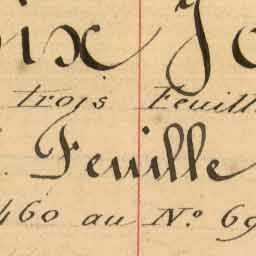 ix Jo
trois Feuill
Feuille
460 au N.º 69